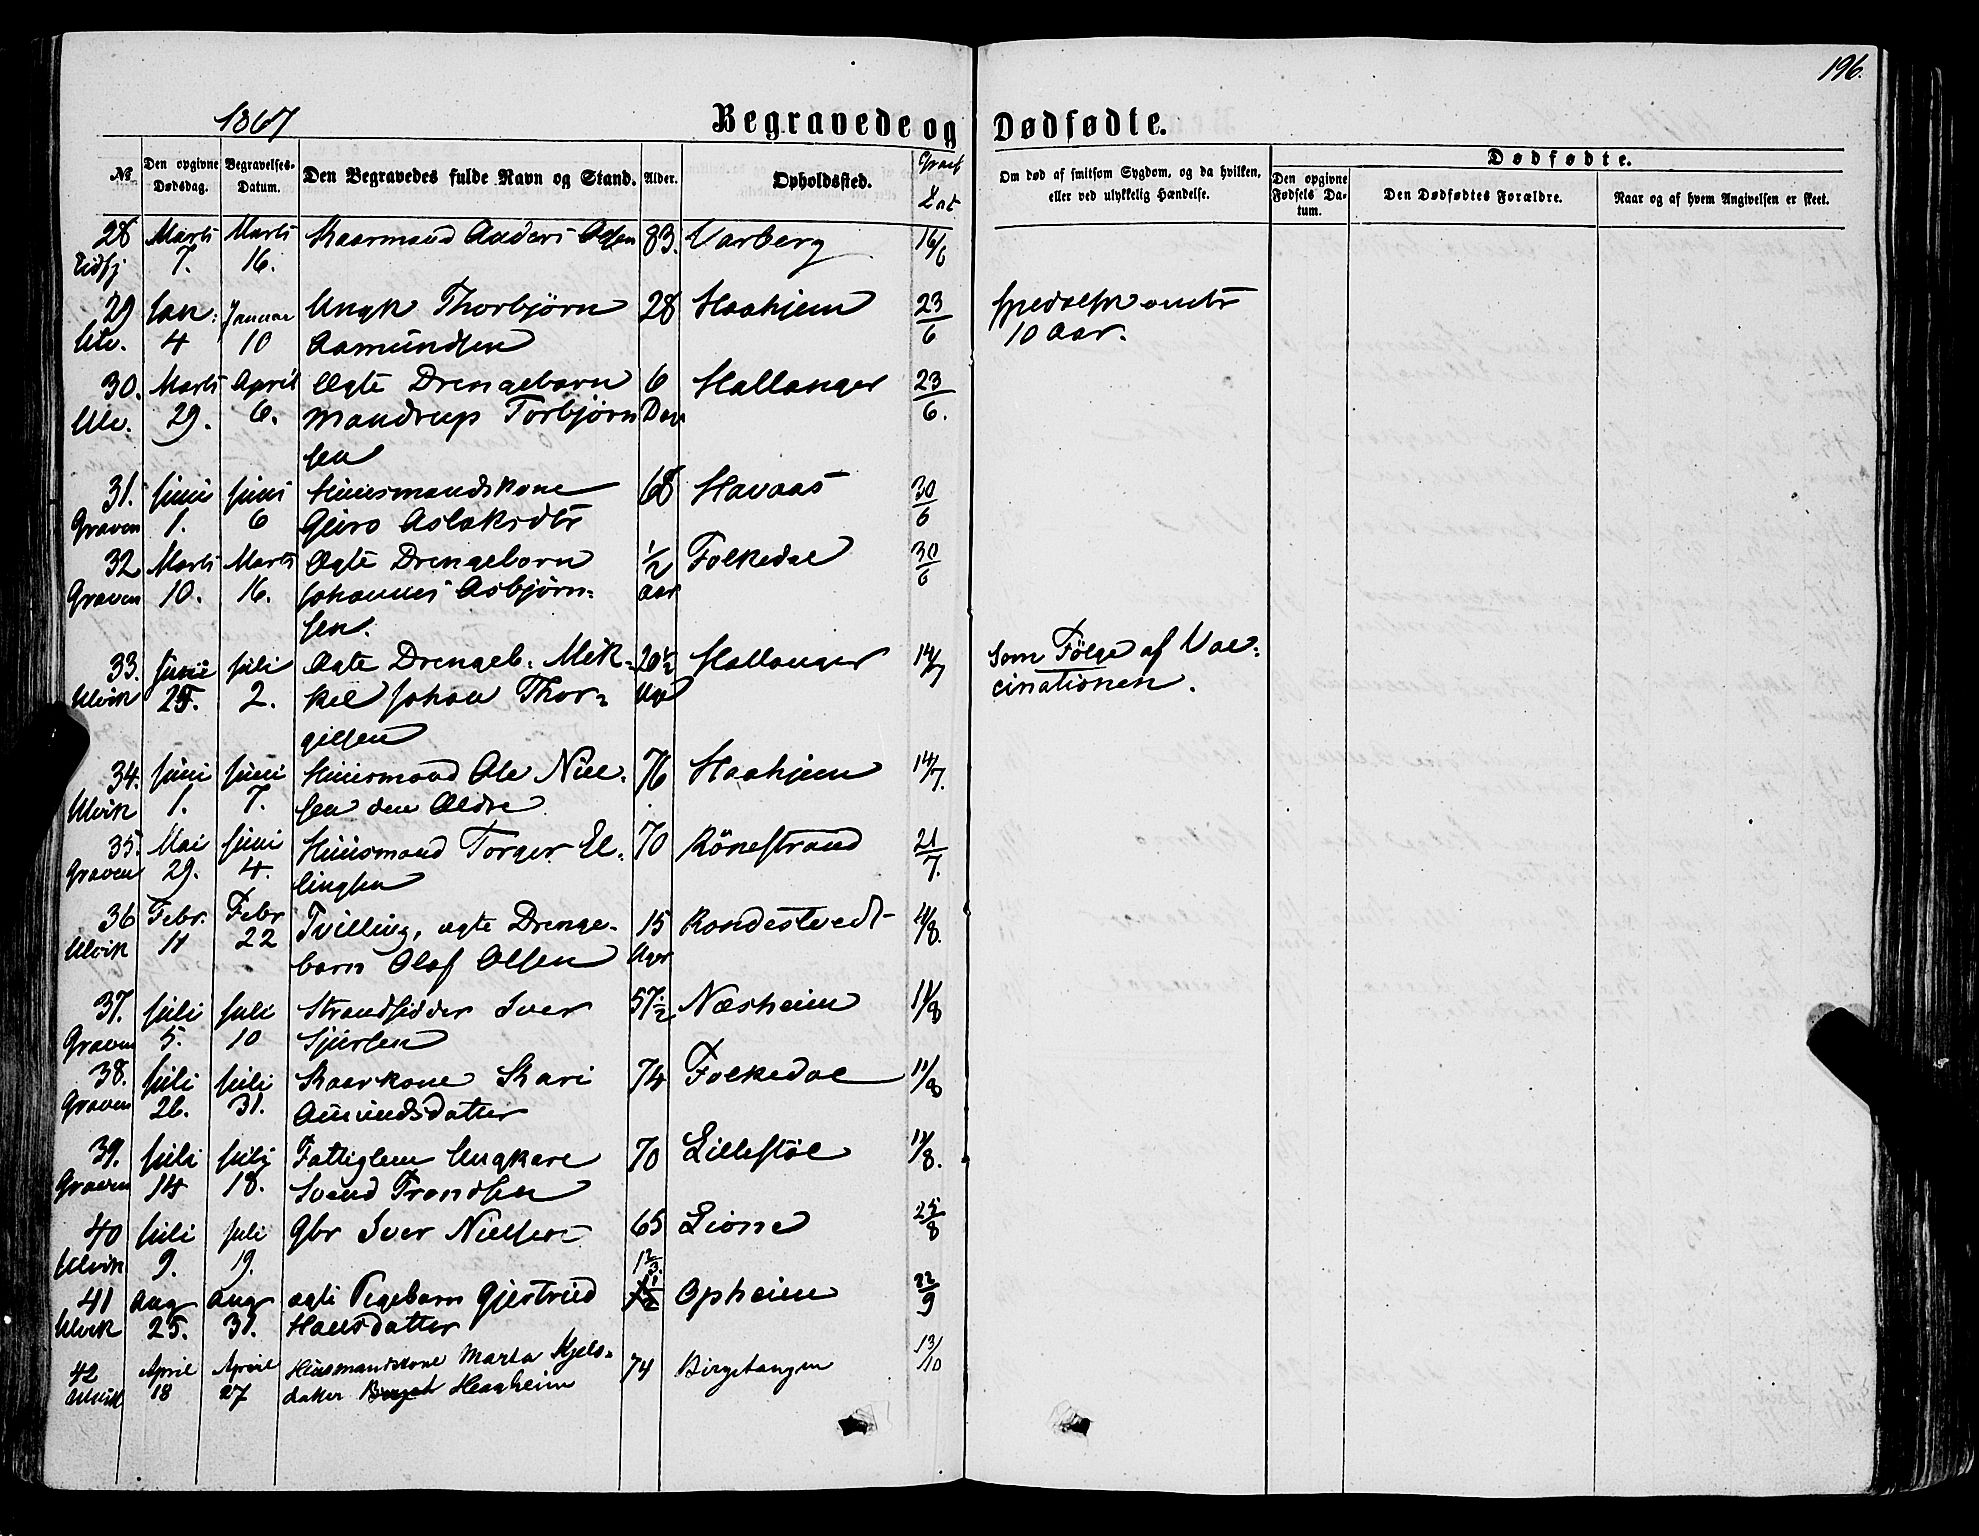 196.
1867
Begravede og Dødfødte.
№
Den opgivne Dødsdag.
Begravelses-Datum.
Den Begravedes fulde Navn og Stand.
Alder.
Opholdssted.
Om død af smitsom Sygdom, og da hvilken, eller ved ulykkelig Hændelse.
Dødfødte.
Den opgivne Fødsels Datum.
Den Dødfødtes Forældre.
Naar og af hvem Angivelsen er skeet.
28 Marts Marts Kaarmand Anders 83. Varberg 16/6
Eidfj 7. 16.
29 Jan: Januar Ungk Thorbjörn 28 Haahjem 23/6 spedalsk omtr
Ulv. 4 10 Aamundsen 10 Aar.
30. Marts April Ægte Drengebarn 6 Hallanger 23/6.
Ulv. 29. 6. Mandrup Torbjørn
sen
31. Juni Juni Huusmandskone 68 Havaas 30/6
Graven 1. 6 Guro Aslaksdtr
32 Marts Marts Ægte Drengebarn 1/2 Folkedal 30/6
Graven 10. 16. Johannes Asbjørn- Aar
sen.
33. Juni Juli Ægte Drengeb. Mik- Hallanger 14/7 Som Fölge af Vac-
Ulvik 25. 2. kel Johan Thor- cinationen.
gilsen
34. Juni Juni Huusmand Ole Niel- 76 Haahjem 14/7.
Ulvik 1. 7. sen den Ældre
35. Mai Juni Huusmand Torger El- 70 Rönestrand 21/7.
Graven 29. 4. lingsen
36 Febr. Febr Tvilling, ægte Drenge- 15 Rondestvedt 4/8.
Ulvik 11 22 barn Olaf Olsen Uger
37. Juli Juli Strandsidder Iver 57 1/2 Næsheim 11/8
Graven 5. 10 Sjursen
38. Juli Juli Kaarkone Kari 74 Folkedal 11/8
Graven 26. 31. Amundsdatter
39. Juli Juli Fattiglem Ungkare 70 Lillestöl 11/8.
Graven 14 18. Svend Trondsen
40 Juli Juli Gbr Iver Nielsen 65 Lione 25/8
Ulvik 9. 19.
41 Aug Aug ægte Pigebarn Gjertrud Opheim 22/9
Ulvik 25. 31. Hansdatter
42 April April Huusmandskone Marta Kjels- 74 Birgetangen 13/10
Ulvik 18 27 datter Haaheim